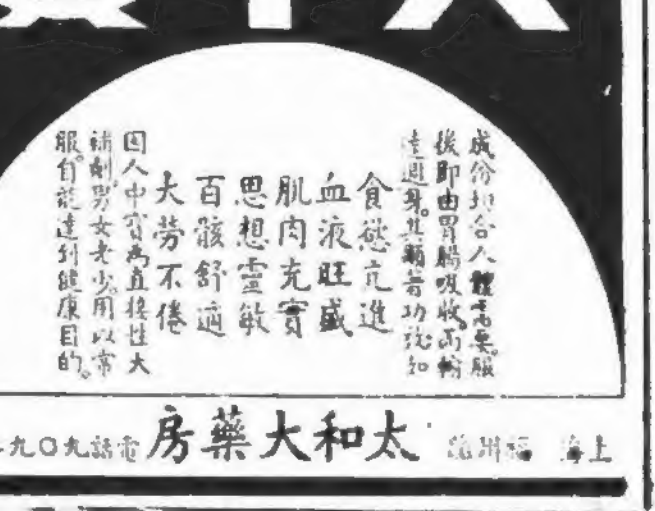 成份切合人體需要。服
後即由胃腸吸收。而輸
達週身。其顯著功效如
食慾亢進
血液旺盛
肌肉充實
思想靈敏
百骸舒適
大勞不倦
因人中寶為直接性大
補劑。男女老少。用以常
服。自能達到健康目的。
上海 福州路 太和大藥房 電話九〇九